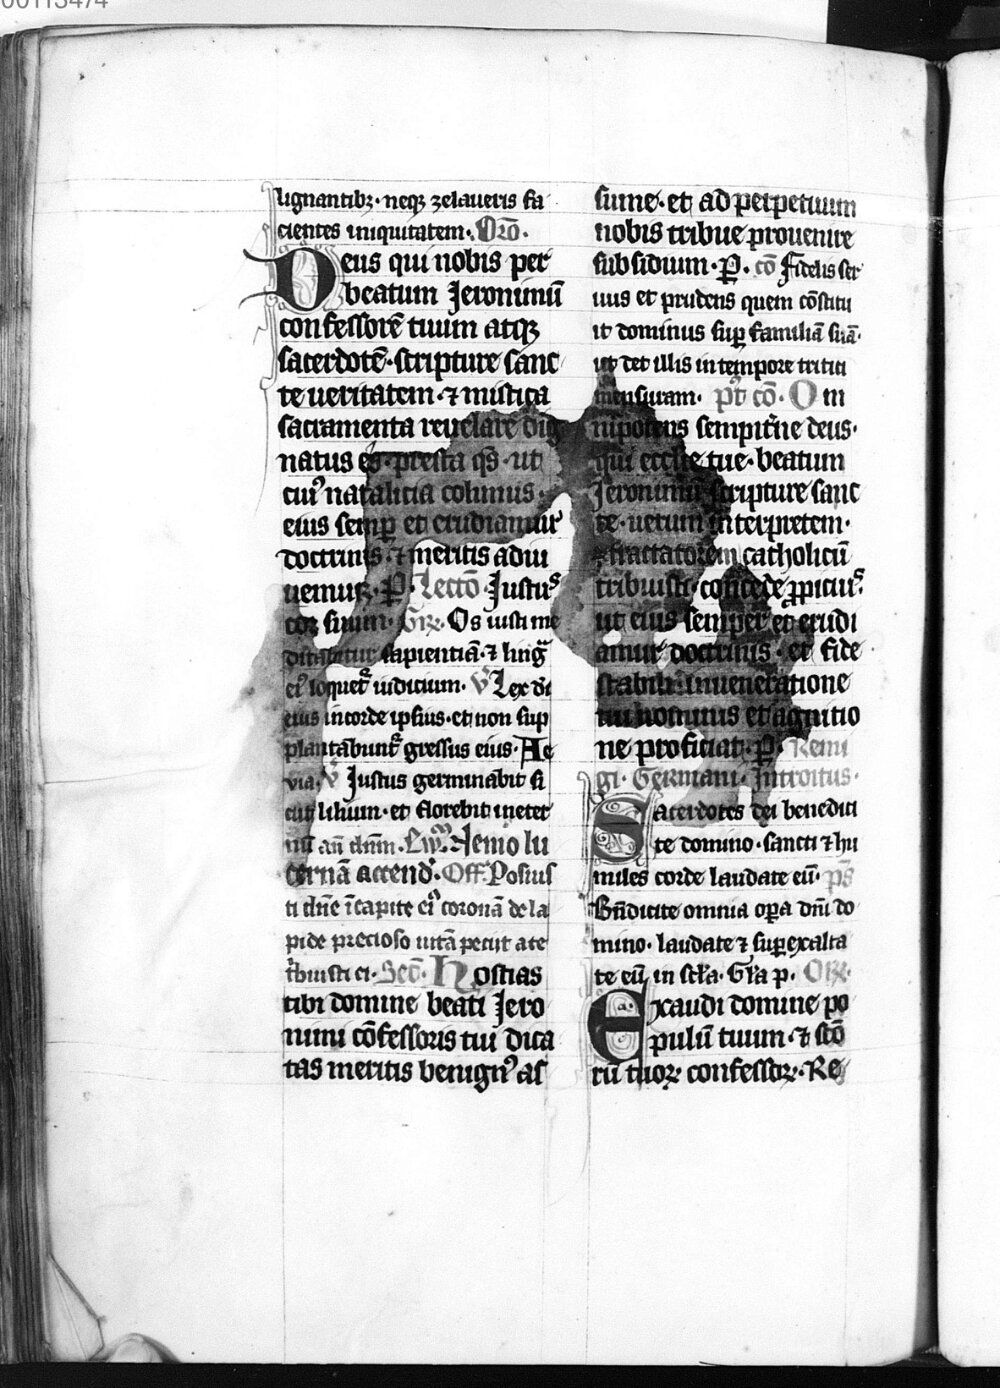 00113474
lignantibꝫ· neqꝫ zelaueris fa
cientes iniquitatem· Orō·
Deus qui nobis per
beatum Jeronimū
confessorē tuum atqꝫ
sacerdotē· scripture sanc
te ueritatem· ⁊ mistica
sacramenta reuelare dig
natus es· presta qs̄· ut
cuiꝰ natalicia colimus·
eius semꝑ et erudiamur
doctrinis ⁊ meritis adiu
uemur· P̱· Lectō· Justus
cor suum· Gr̄· Os iusti me
ditabitur sapientiā· ⁊ ling̃
eiꝰ loquet᷑ iudicium· V̓ Lex di
eius in corde ipsius· et non sup
plantabunt᷑ gressus eius· Ae
uia· V̓ Justus germinabit si
cut lilium· et florebit in eter
nū an̄ dnm̄· Ew̄m Nemo lu
cernā accend̓· Off· Posuis
ti dn̄e ī capite eiꝰ coronā de la
pide precioso uitā petiit a te
t᷑buisti ei· Sec̄· Hostias
tibi domine beati Jero
nimi cōfessoris tui dica
tas meritis benignꝰ as
sume· et ad perpetuum
nobis tribue prouenire
subsidium· P̱· cō Fidelis ser
uus et prudens quem cōstitu
it dominus suꝑ familiā suā·
ut det illis in tempore tritici
mensuram· p̄t cō· Om
nipotens sempit̓ne deus·
qui ecclīe tue· beatum
Jeronimū scripture sanc
te· uerum interpretem·
⁊ tractatorem catholicū
tribuisti· concede ꝓpiciuˢ·
ut eius semper et erudi
amur doctrinis· et fide
stabili in ueneratione
tui nominis et agnitio
ne proficiat· P̱· Remi
gi· Germani· Introitus·
Sacerdotes dei benedici
te domino· sancti ⁊ hu
miles corde laudate eū· p̄s
Bn̄dicite omnia oꝑa dn̄i do
mino· laudate ⁊ suꝑexalta
te eū in sc̄la· Gl̄a p· Or̄·
Exaudi domine po
pulū tuum· ⁊ scō
rū tuoꝝ confessoꝝ· Re